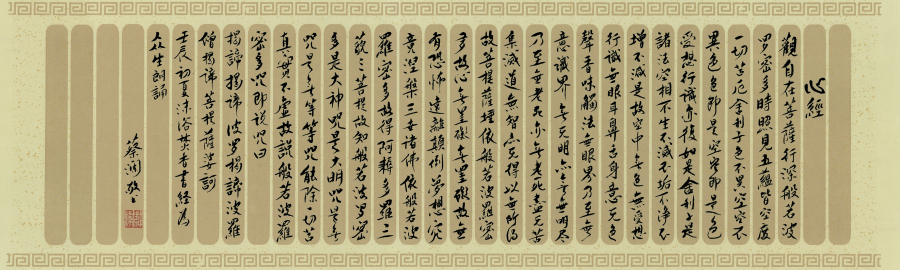 心經
觀自在菩薩行深般若波
羅密多時照見五蘊皆空度
一切苦厄舍利子色不異空空不
異色色即是空空即是色
受想行識亦復如是舍利子是
諸法空相不生不滅不垢不淨不
增不減是故空中無色無受想
行識無眼耳鼻舌身意无色
聲香味觸法無眼界乃至無
意識界無无明亦無無明盡
乃至無老死亦無老死盡无苦
集滅道無智亦无得以無所得
故菩提薩埵依般若波羅密
多故心無罣礙無罣礙故無
有恐怖遠離顛倒夢想究
竟涅槃三世諸佛依般若波
羅密多故得阿耨多羅三
藐三菩提故知般若波羅密
多是大神咒是大明咒是無
上咒是無等等咒能除一切苦
真實不虛故說般若波羅
密多咒即說咒曰
揭諦揭諦波羅揭諦波羅
僧揭諦菩提薩婆訶
壬辰初夏沐浴焚香書經為
众生朗誦
蔡闊敬書